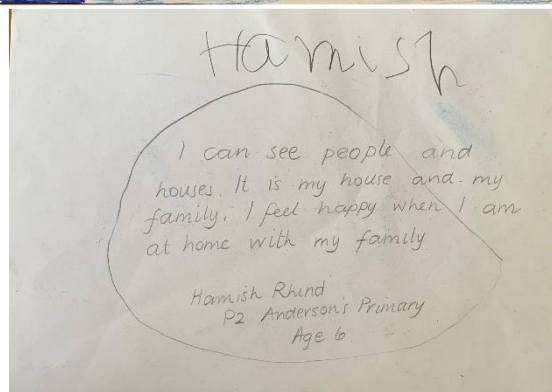 Hamish
I can see people and
houses. It is my house and my
family. I feel happy when I am
at home with my family
Hamish Rhind
P2 Anderson's Primary
Age 6